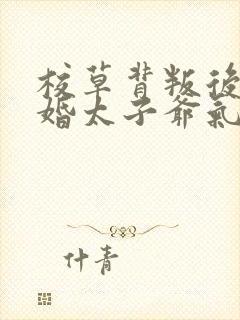 校草背叛後
婚太子爺氣
什青